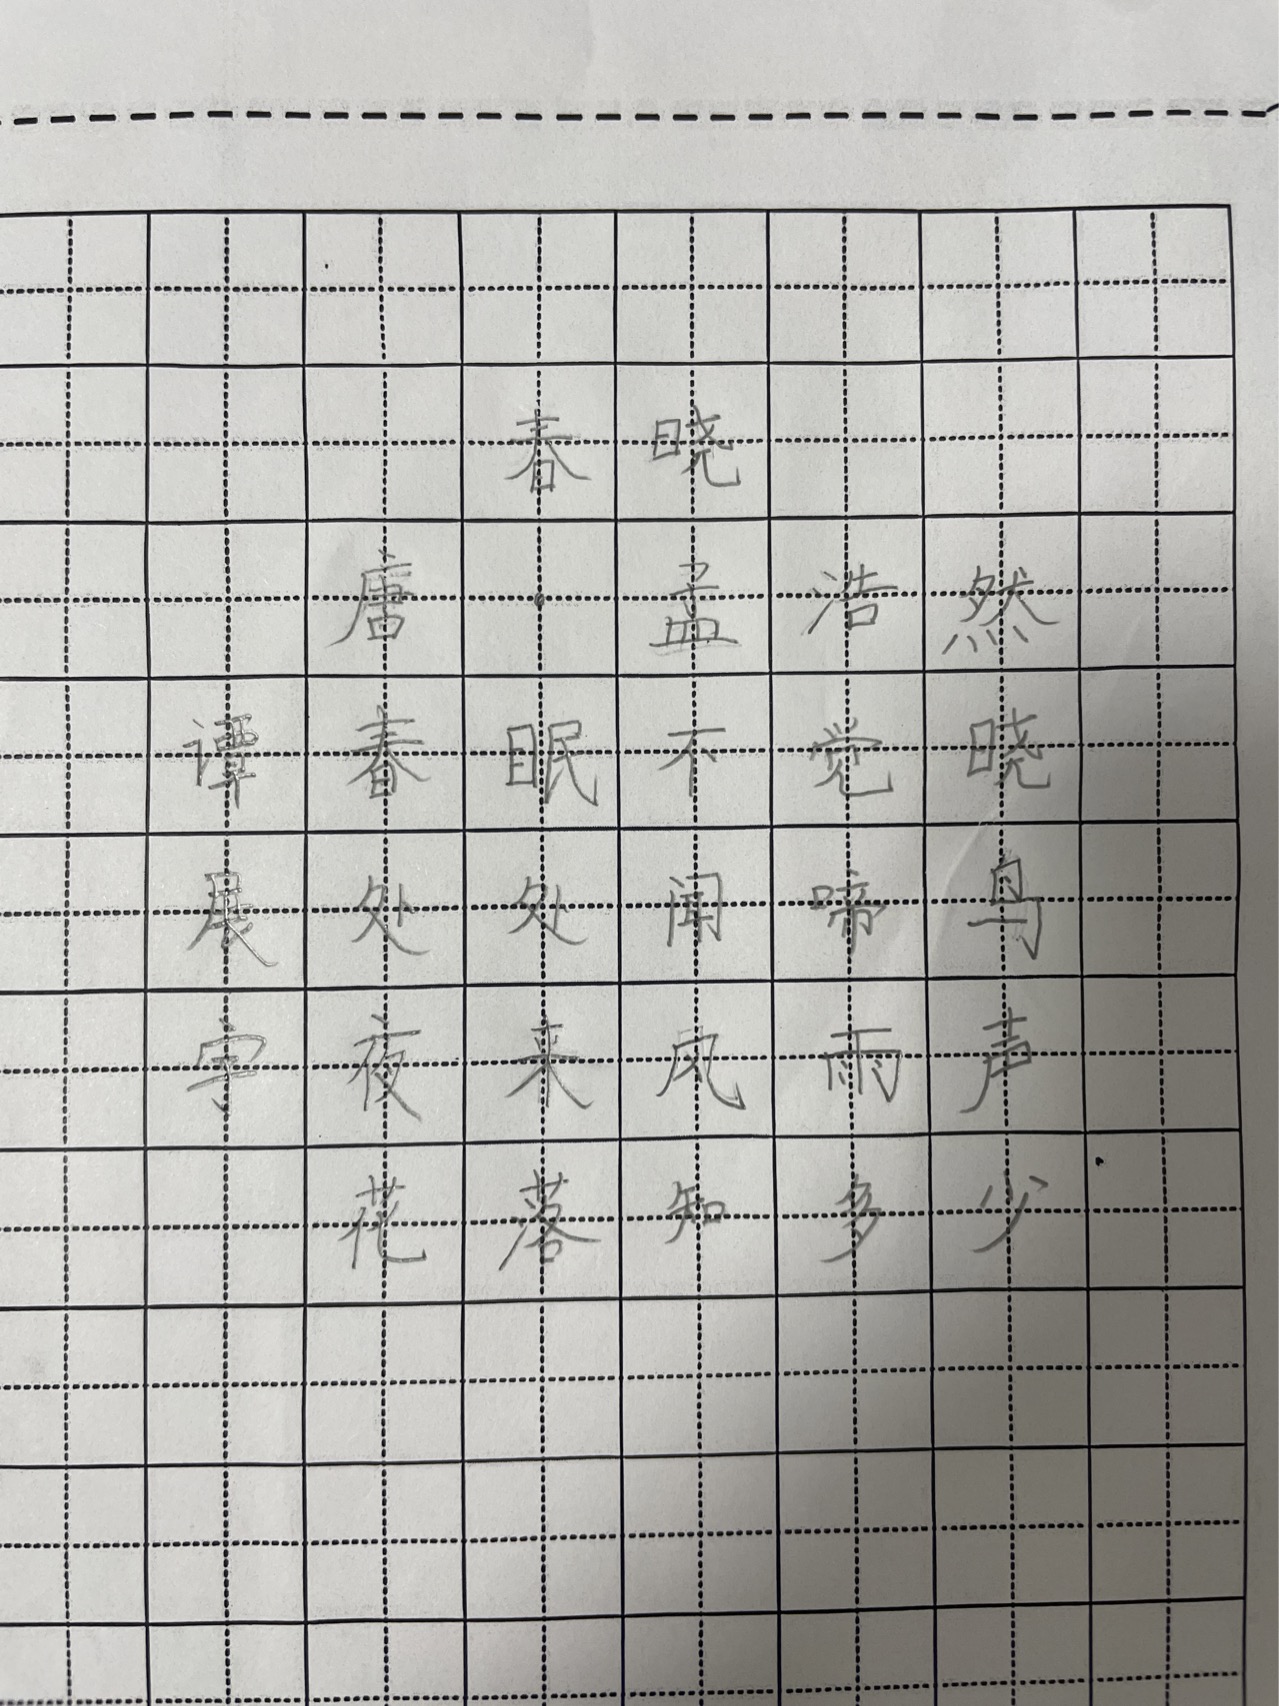 春晓
唐·孟浩然
谭春眠不觉晓
展处处闻啼鸟
宇夜来风雨声
花落知多少